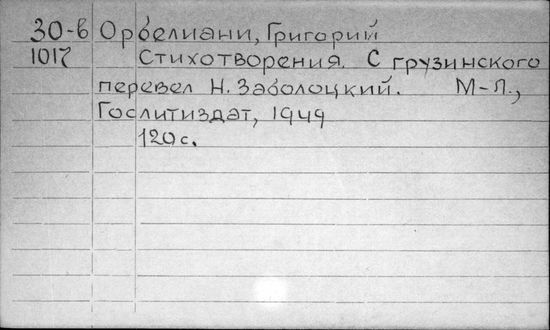 30-в Орбелиани, Григорий
1017 Стихотворения. С грузинского
перевел Н. Заболоцкий. М-Л.,
Гослитиздат, 1949
120 с.